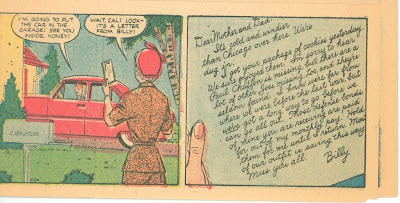 I'M GOING TO PUT
THE CAR IN THE
GARAGE! SEE YOU
INSIDE, HONEY!
WAIT, CAL! LOOK--
IT'S A LETTER
FROM BILLY!
Dear Mother and Dad
It's cold and windier
than Chicago over here. We're
dug in.
I got your package of cookies yesterday
We sure enjoyed them. I'm sorry to hear
Paul Chadley's missing but there are a
lot of other Joes missing, too, and they're
seldom found. I know we're far from
where we were before the last war, but
we've got a long way to go before we
can go all out. Those defense bonds
of mine you are receiving are paid
for out of my monthly pay. Hold
them for me until I return. Most
of our outfit is saving this way
Miss you all.
Billy